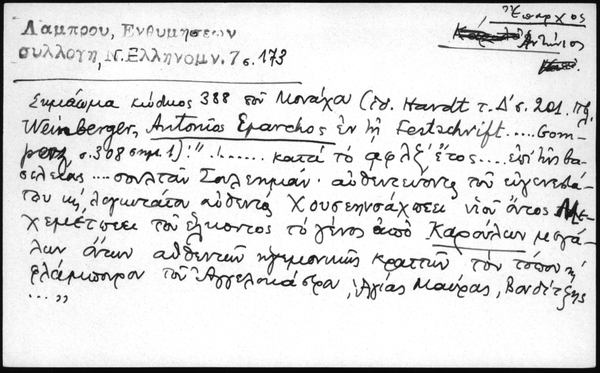 Λάμπρου, Ἐνθυμήσεων
συλλογή, Ν. Ἑλληνομν. 7 σ. 173
Ἔπαρχος
Ἀντώνιος
Σημείωμα κώδικος 388 τοῦ Μονάχου (ἰδ. Hardt τ. Δ' σ. 201. πβλ.
Weinberger, Antonios Eparchos ἐν τῇ Festschrift .... Gom-
perz, σ. 308 σημ. 1): "....... κατὰ τὸ ͵αφλζ' ἔτος .... ἐπὶ τῆς βα-
σιλείας .... σουλτὰν Σουλεημιάν· αὐθεντεύοντος τοῦ εὐγενεστά-
του κῃ λογιωτάτου αὐθεντὸς Χουσεηνσάχπεει υἱοῦ ὄντος Με-
χεμέτπεει τοῦ ἕλκοντος τὸ γένος ἀπὸ Καρούλων μεγά-
λων ὄντων αὐθεντῶν ἡγεμονικῆς κρατεῖν τὸν τόπον κῃ
φλάμπουρον τοῦ Ἀγγελοκάστρου, Ἁγίας Μαύρας, Βονδίτζης
...."